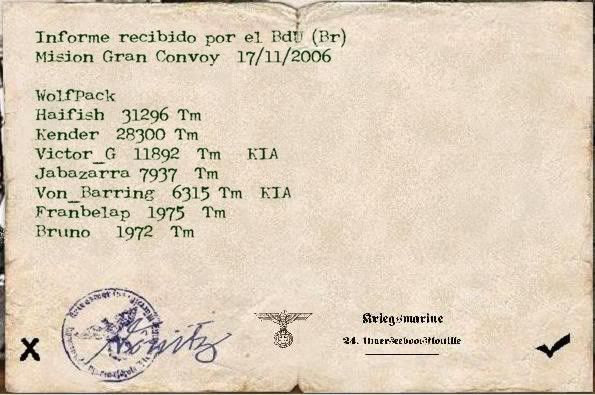 Informe recibido por el BdU (Br)
Mision Gran Convoy 17/11/2006
WolfPack
Haifish 31296 Tm
Kender 28300 Tm
Victor_G 11892 Tm KIA
Jabazarra 7937 Tm
Von_Barring 6315 Tm KIA
Franbelap 1975 Tm
Bruno 1972 Tm
Kriegsmarine
24.